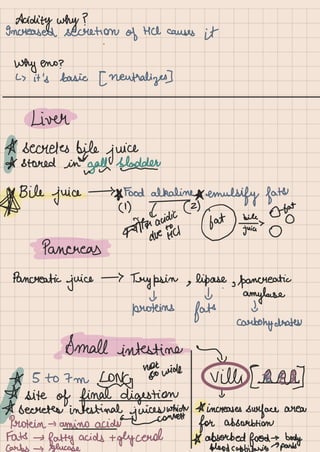 Acidity why?
Increased secretion of HCl causes it
Why eno?
↳ it's basic [neutralizes]
Liver
★ secretes bile juice
★ stored in gall bladder
★ Bile juice → ★ Food alkaline ★ emulsify fats
(1) (2)
acidic
due to
HCl
fat
bile
juice
fat
Pancreas
Pancreatic juice → Trypsin, lipase, pancreatic
amylase
proteins fats
carbohydrates
Small intestine
★ 5 to 7m LONG not
so wide
★ site of final digestion
★ secretes intestinal juices which
convert
Protein → amino acids
Fats → fatty acids + glycerol
Carbs → glucose
Villi
★ increases surface area
for absorbtion
★ absorbed food → body
blood capillaries parts